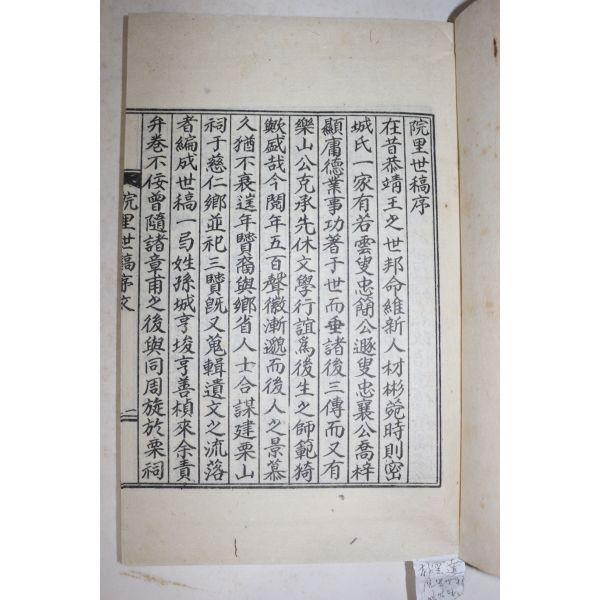 院里世稿序
在昔恭靖王之世邦命維新人材彬蔚時則密
城氏一家有若雲叟忠簡公遯叟忠襄公喬梓
顯庸德業事功著于世而垂諸後三傳而又有
樂山公克承先休文學行誼爲後生之師範猗
歟盛哉今閱年五百聲徽漸邈而後人之景慕
久猶不衰迬年賢裔與鄉省人士合謀建栗山
祠于慈仁鄉並祀三賢旣又蒐輯遺文之流落
者編成世稿一局姓孫城亨埈亨善楨來余責
弁卷不佞曾隨諸章甫之後與同周旋於栗祠
院里世稿序文
二